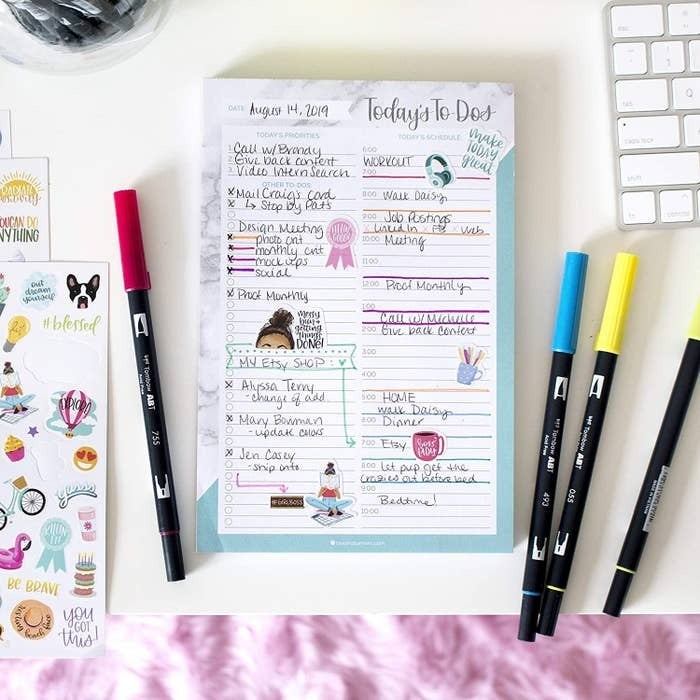 DATE: August 14, 2019
Today's To Dos
TODAY'S PRIORITIES
1 Call w/ Brandy
2 Give back content
3 Video Intern Search
OTHER TO-DOS
x Mail Craig's card
x ↳ Stop by Pat's
Design Meeting
x photo
x monthly
x mock ups
x social
x Proof Monthly
KILLIN' GOALS
messy bun + getting things DONE!
MY Etsy SHOP:
x Alyssa Terry
- change of add
x Mary Bowman
- update colors
x Jen Casey
- snip into
#GIRLBOSS
TODAY'S SCHEDULE:
make TODAY great
6:00
WORKOUT
7:00
8:00
Walk Daisy
9:00
Job Postings
Linked In x FB x Web
10:00
Meeting
11:00
12:00
Proof Monthly
1:00
Call w/ Michelle
2:00
Give back content
3:00
4:00
5:00
HOME
walk Daisy
6:00
Dinner
7:00
Etsy
BOSS LADY
8:00
let pup get the
crazies out before bed
9:00
Bedtime!
10:00
RADIATE positivity
YOU CAN DO ANYTHING
out dream yourself
#blessed
EXPLORE
yasss
KILLIN' IT
BE BRAVE
you got this!
ABT
Tombow
755
ABT
Tombow
493
ABT
Tombow
055
tab
caps lock
shift